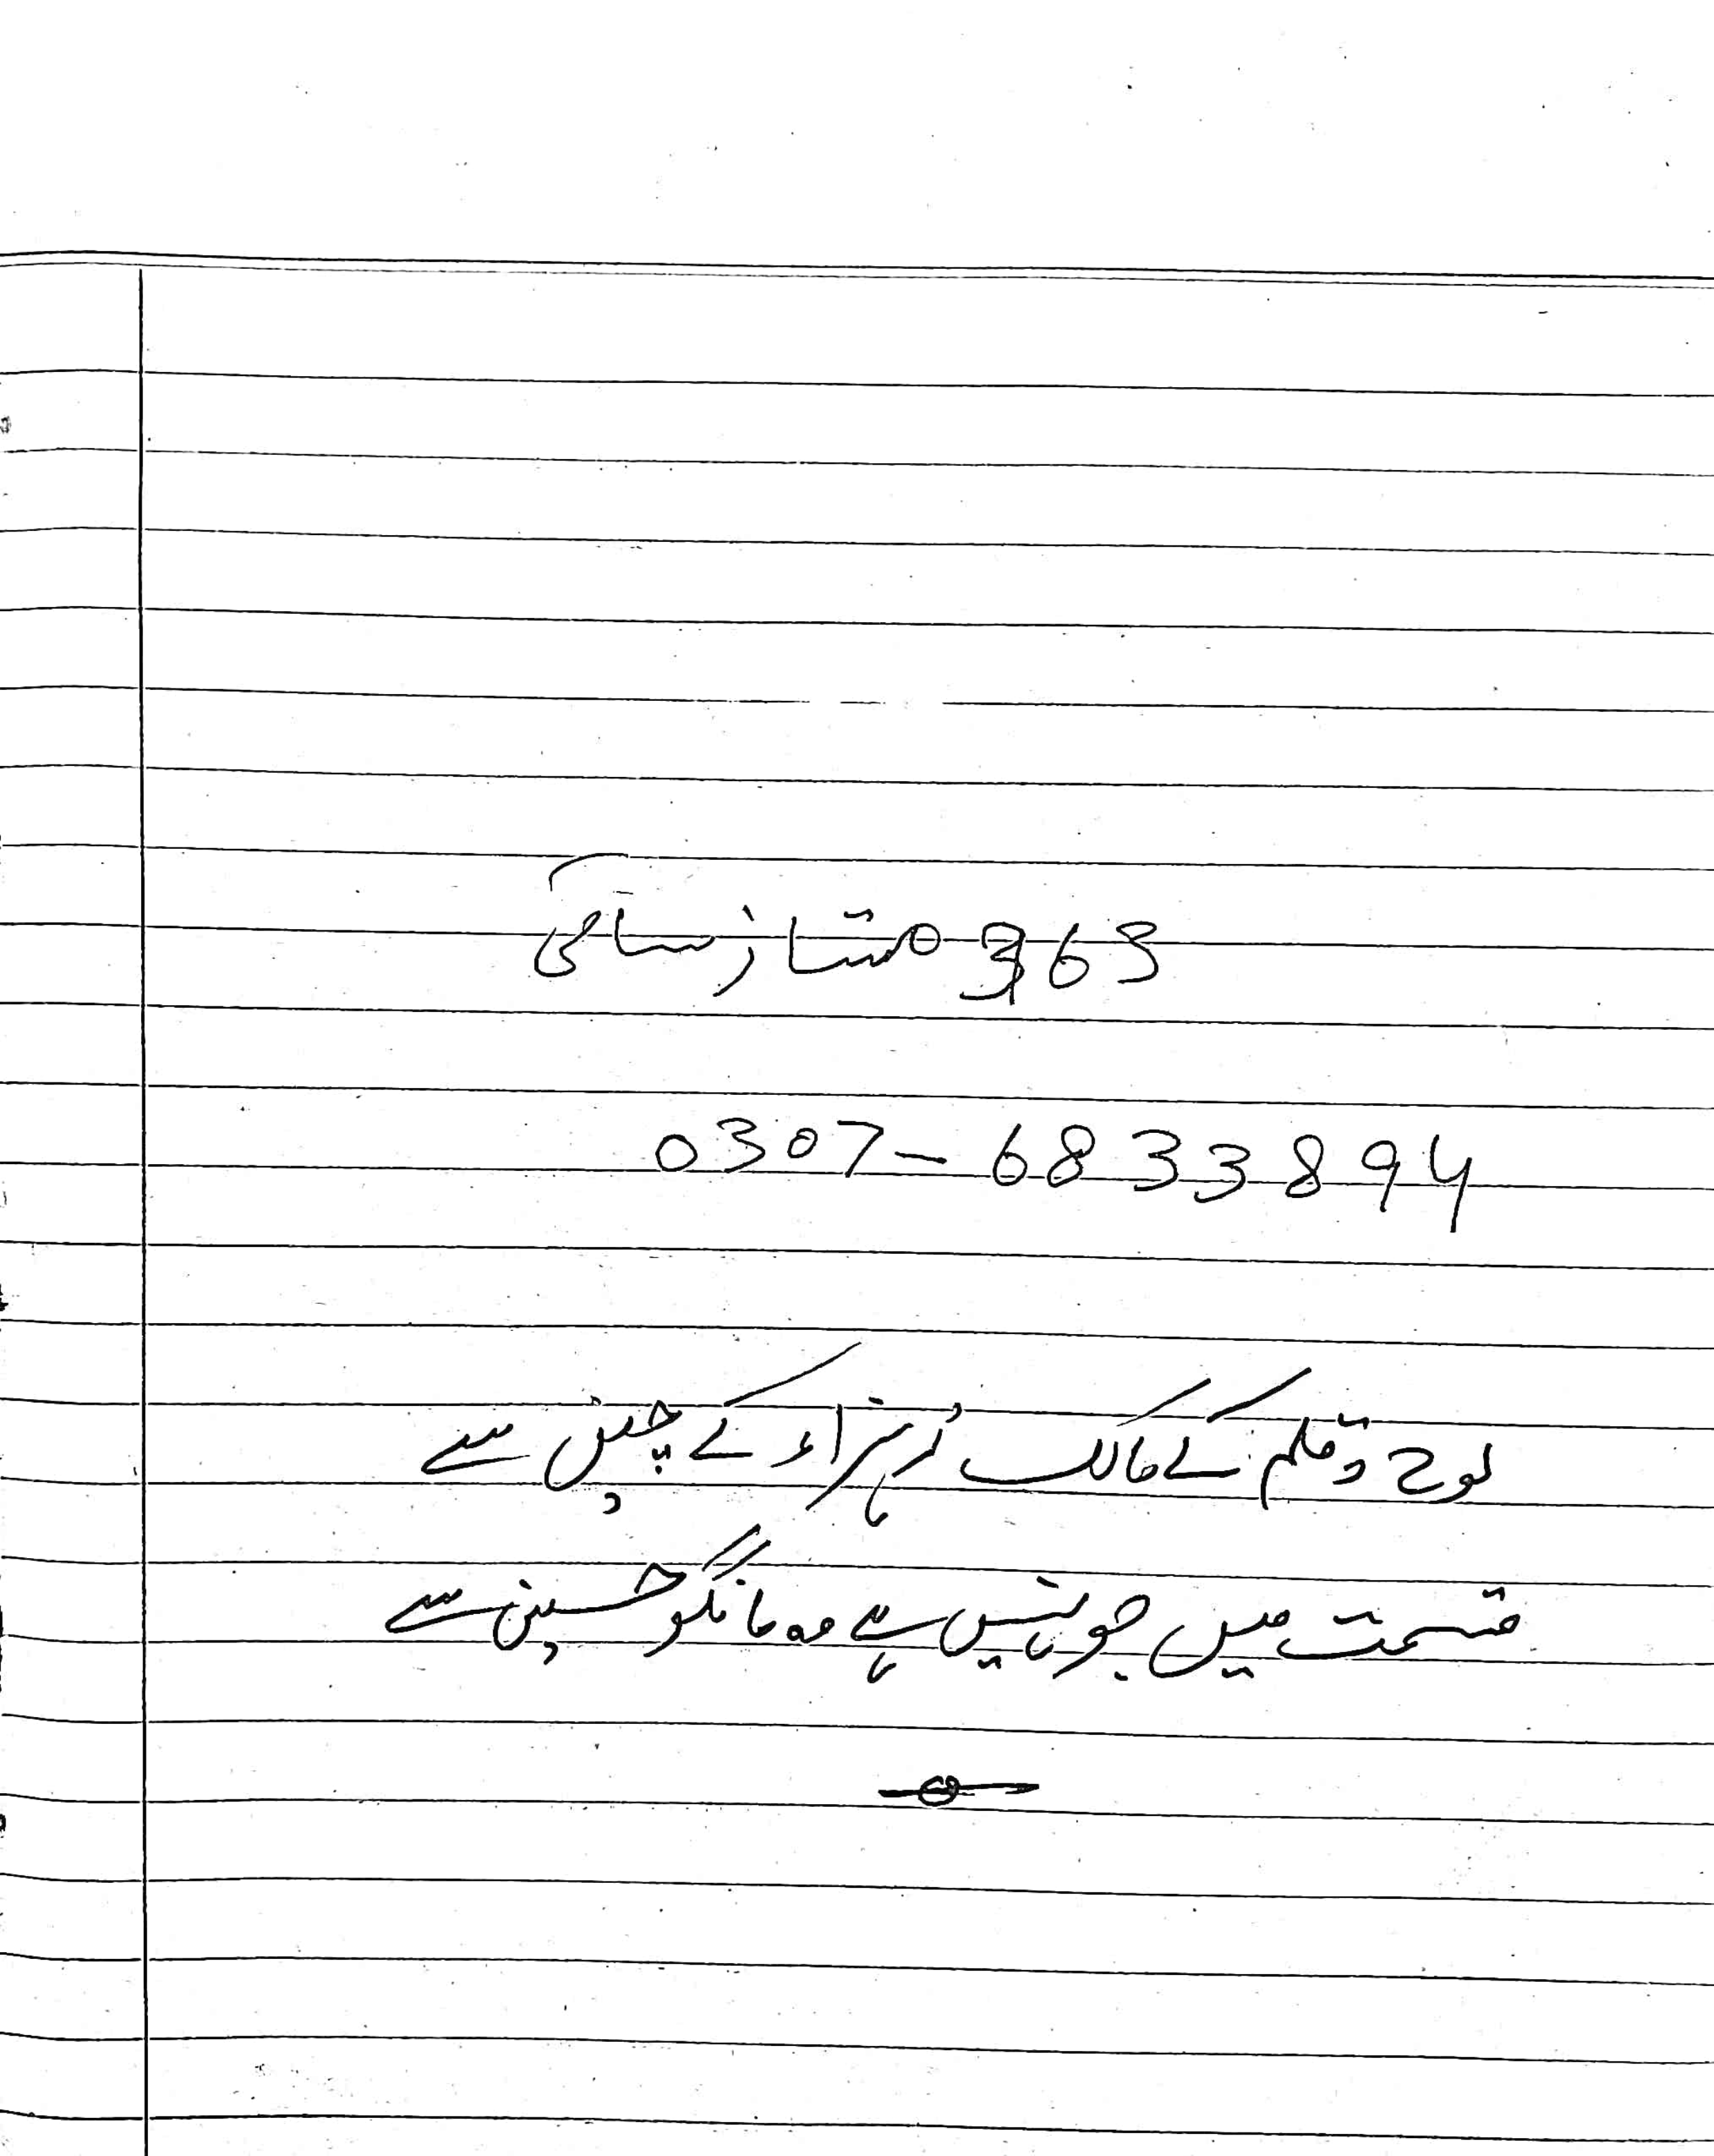 363 ممتاز ساقی
0307-6833894
لوح و قلم کے مالک زہراء کے چین سے
قسمت میں جو نہیں ہے وہ مانگو حسین سے